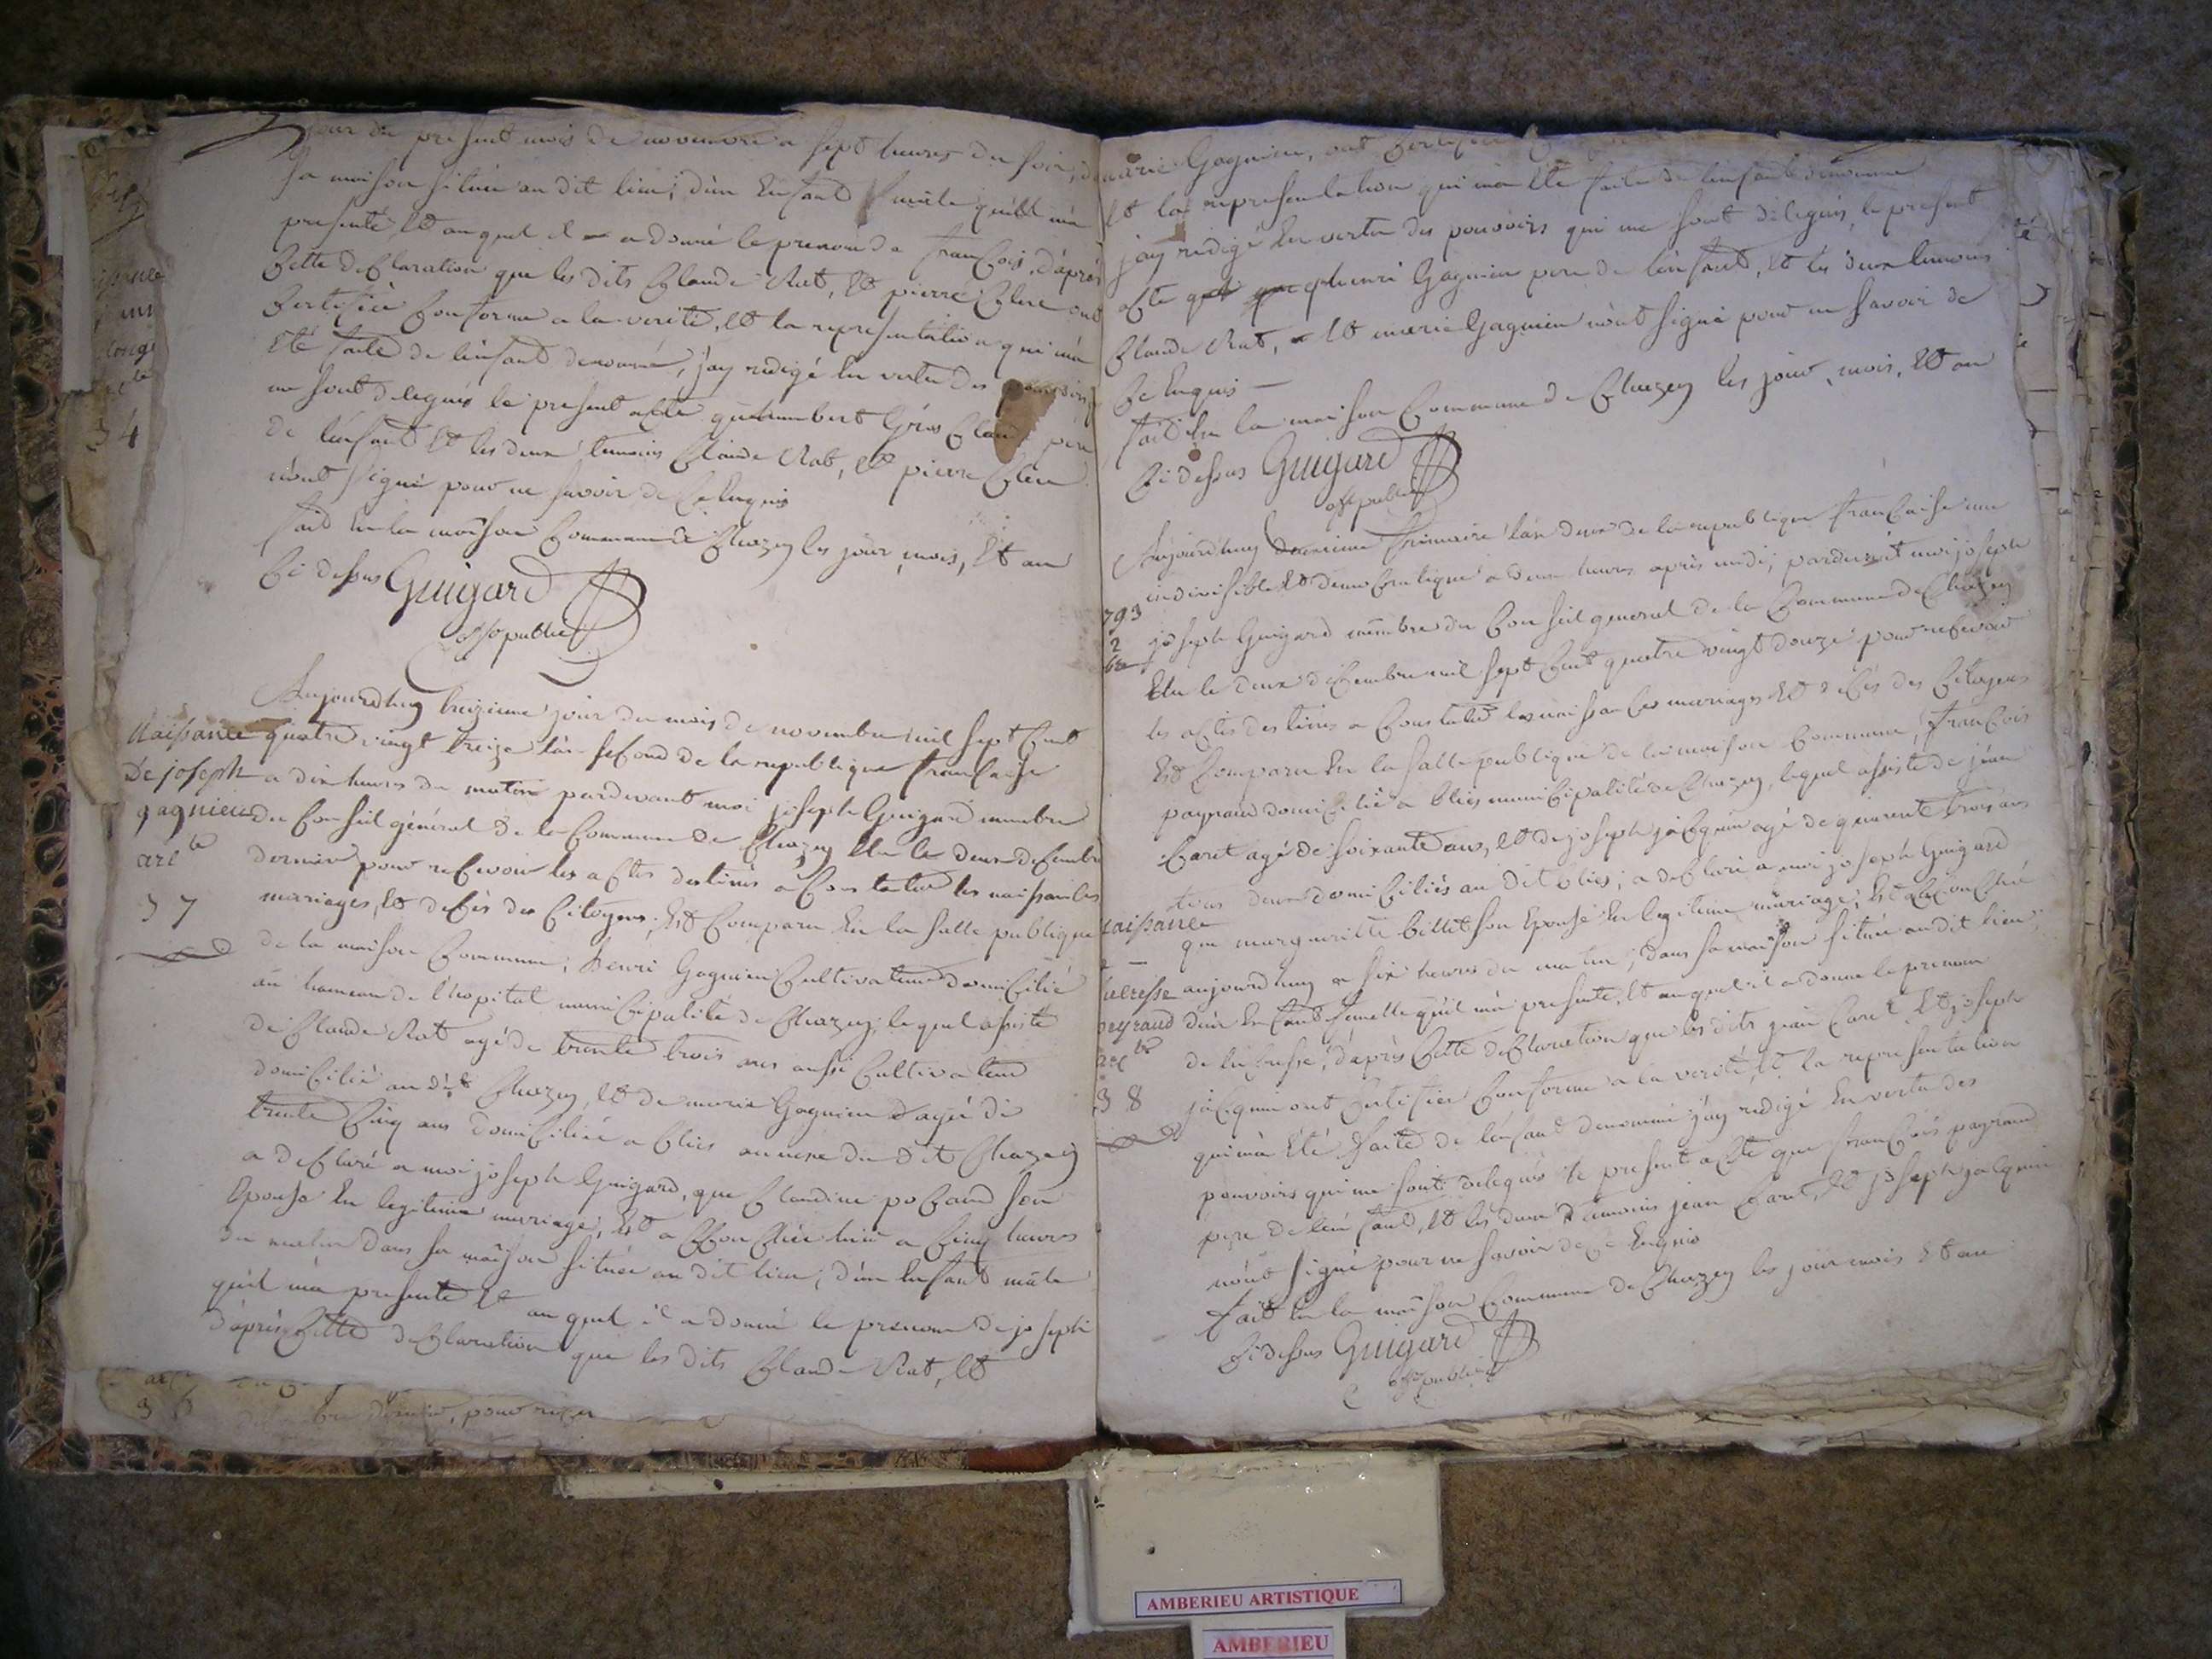 jour du present mois de novembre a sept heures du soir, d
sa maison située au dit lieu; d'un Enfant mâle qu'il m'a
presenté, Et auquel il a donné le prenom de francois, d'après
Cette declaration que les dits Claude Rat, Et pierre Clere ont
Certifiée Conforme a la verité, Et la representation qui m'a
Eté faite de l'enfant denommé, j'ay redigé En vertu des pouvoirs
me sont delegués le present acte qu'humbert Gros Claud pere
de l'enfant Et les deux temoins Claude Rat, Et pierre Clere
n'ont signé pour ne savoir de Ce Enquis
fait En la maison Commune de Chazey les jour, mois, Et an
Ci dessus Guigard
off. public
Naissance
De joseph
gagnieu
art.le
37
Aujourdhuy treizieme jour du mois de novembre mil sept Cent
quatre vingt treize l'an second de la republique francaise
a dix heures du matin pardevant moi joseph Guigard membre
du Conseil général de la Commune de Chazey Elu le deux decembre
dernier pour recevoir les actes destinés a Constater les naissances
mariages, Et décès des Citoyens; Est Comparu En la salle publique
de la maison Commune, henri Gagnieu Cultivateur domicilié
au hameau de l'hopital municipalité de Chazey, lequel assisté
de Claude Rat agé de trente trois ans aussi Cultivateur
domicilié au dit Chazey, Et de marie Gagnieu agée de
trente Cinq ans domiciliée a blies annexe du dit Chazey
a declaré a moi joseph Guigard, que Claudine pocand son
Epouse En legitime mariage; Est accouchée hier a Cinq heures
du matin dans sa maison située au dit lieu; d'un Enfant mâle
qu'il m'a presenté Et auquel il a donné le prenom de joseph
d'après Cette declaration que les dits Claude Rat, Et
36
dernier, pour
34
marie Gagnieu, ont
Et la representation qui m'a Eté faite de l'enfant denommé
j'ay redigé En vertu des pouvoirs qui me sont delegués, le present
acte qu'henri Gagnieu pere de l'enfant, Et les deux temoins
Claude Rat, Et marie Gagnieu n'ont signé pour ne savoir de
Ce Enquis
fait En la maison Commune de Chazey les jour, mois, Et an
Ci dessus Guigard
off public
793
2
Aujourdhuy douzieme frimaire l'an deux de la republique francaise une
indivisible Et democratique a deux heures après midi; pardevant moi joseph
joseph Guigard membre du Conseil general de la Commune de Chazey
Elu le deux decembre mil sept Cent quatre vingt douze pour recevoir
les actes destinés a Constater les naissances mariages Et décès des Citoyens
Est Comparu En la salle publique de la maison Commune, francois
payraud domicilié a blies municipalité de Chazey, lequel assisté de jean
Caret agé de soixante ans, Et de joseph jacquin agé de quarente trois ans
tous deux domiciliés au dit blies; a declaré a moi joseph Guigard
que margueritte billet son Epouse En legitime mariage; Est accouchée
aujourdhuy a six heures du matin; dans sa maison située au dit lieu;
d'un Enfant femelle qu'il m'a presenté, Et auquel il a donné le prenom
de lucresse, d'après Cette declaration que les dits jean Caret, Et joseph
jacquin ont Certifiée Conforme a la verité, Et la representation
qui m'a Eté faite de l'enfant denommé j'ay redigé En vertu des
pouvoirs qui me sont delegués le present acte que francois payraud
pere de l'enfant, Et les deux temoins jean Caret, Et joseph jacquin
n'ont signé pour ne savoir de Ce Enquis
fait En la maison Commune de Chazey les jour mois Et an
Ci dessus Guigard
off public
naissance
lucresse
peyraud
38
AMBERIEU ARTISTIQUE
AMBERIEU